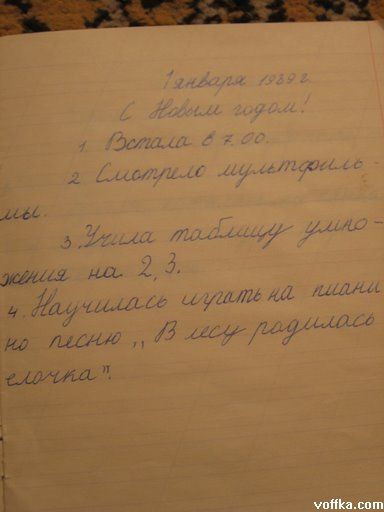 1 января 1939 г.
С Новым годом!
1. Встала в 7.00.
2. Смотрело мультфиль-
мы.
3. Учила таблицу умно-
жения на 2, 3.
4. Научилась играть на пиани
но песню „В лесу родилась
елочка".
voffka.com